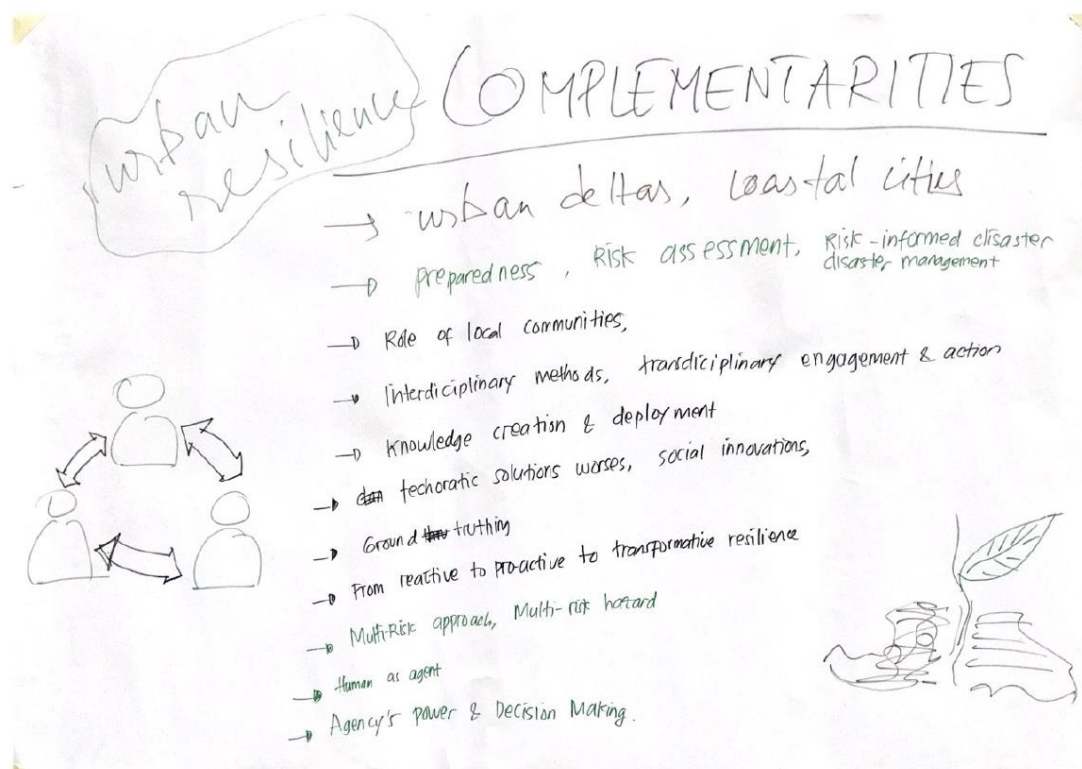 urban
resilience
COMPLEMENTARITIES
→ urban deltas, coastal cities
→ preparedness, Risk assessment, Risk-informed disaster
disaster management
→ Role of local communities,
→ Interdiciplinary methods, transdiciplinary engagement & action
→ Knowledge creation & deployment
→ techoratic solutions worses, social innovations,
→ Ground truthing
→ From reactive to pro-active to transformative resilience
→ Multi-Risk approach, Multi-risk hazard
→ Human as agent
→ Agency's power & Decision Making.